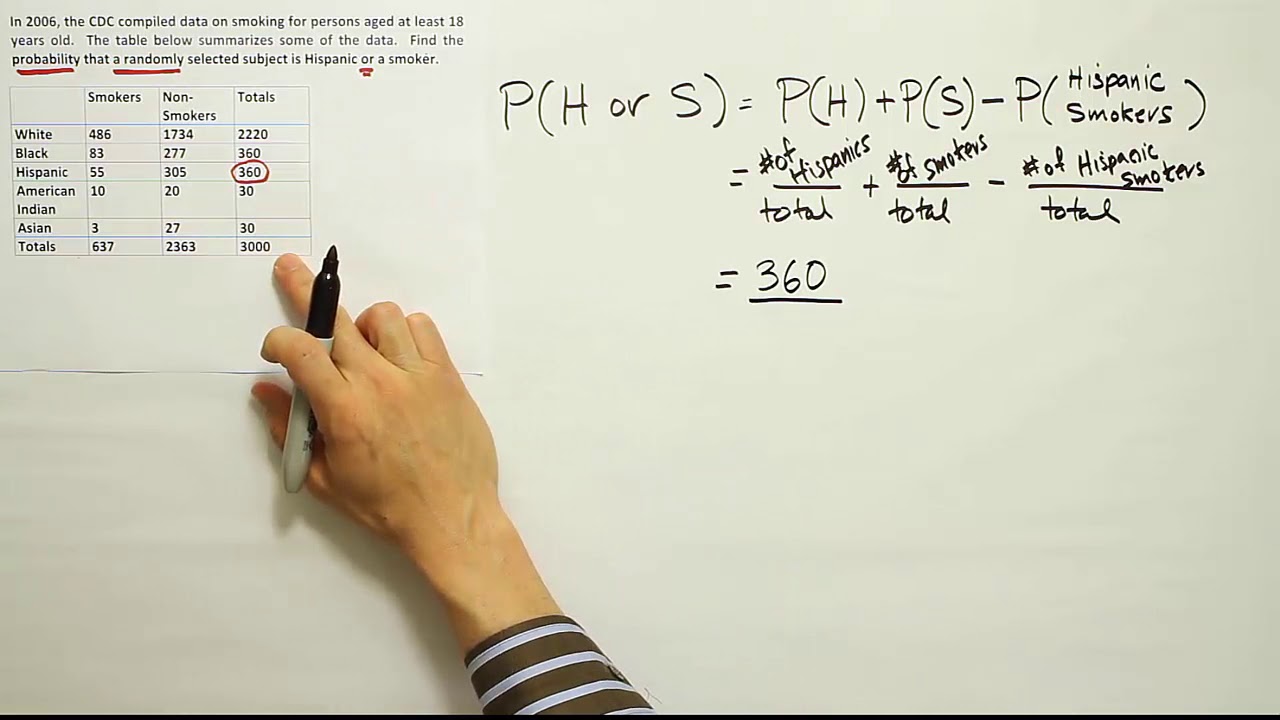 In 2006, the CDC compiled data on smoking for persons aged at least 18
years old. The table below summarizes some of the data. Find the
probability that a randomly selected subject is Hispanic or a smoker.
Smokers Non-Smokers Totals
White 486 1734 2220
Black 83 277 360
Hispanic 55 305 360
American Indian 10 20 30
Asian 3 27 30
Totals 637 2363 3000
P(H or S) = P(H) + P(S) - P(Hispanic Smokers)
= # of Hispanics / total + # of smokers / total - # of Hispanic smokers / total
= 360